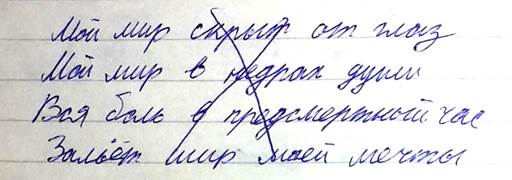 Мой мир скрыт от глаз
Мой мир в недрах души
Вся боль в предсмертный час
Зальёт мир моей мечты